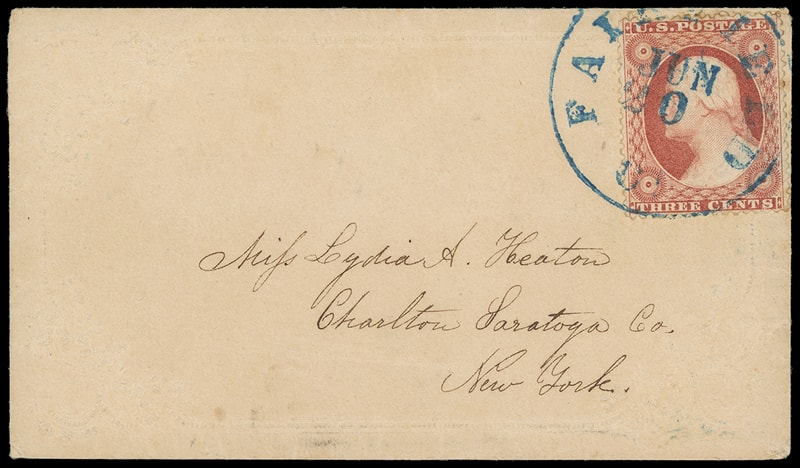 FAIRFIELD
JUN
30
C.
U.S. POSTAGE
THREE CENTS
Miss Lydia A. Heaton
Charlton Saratoga Co.
New York.